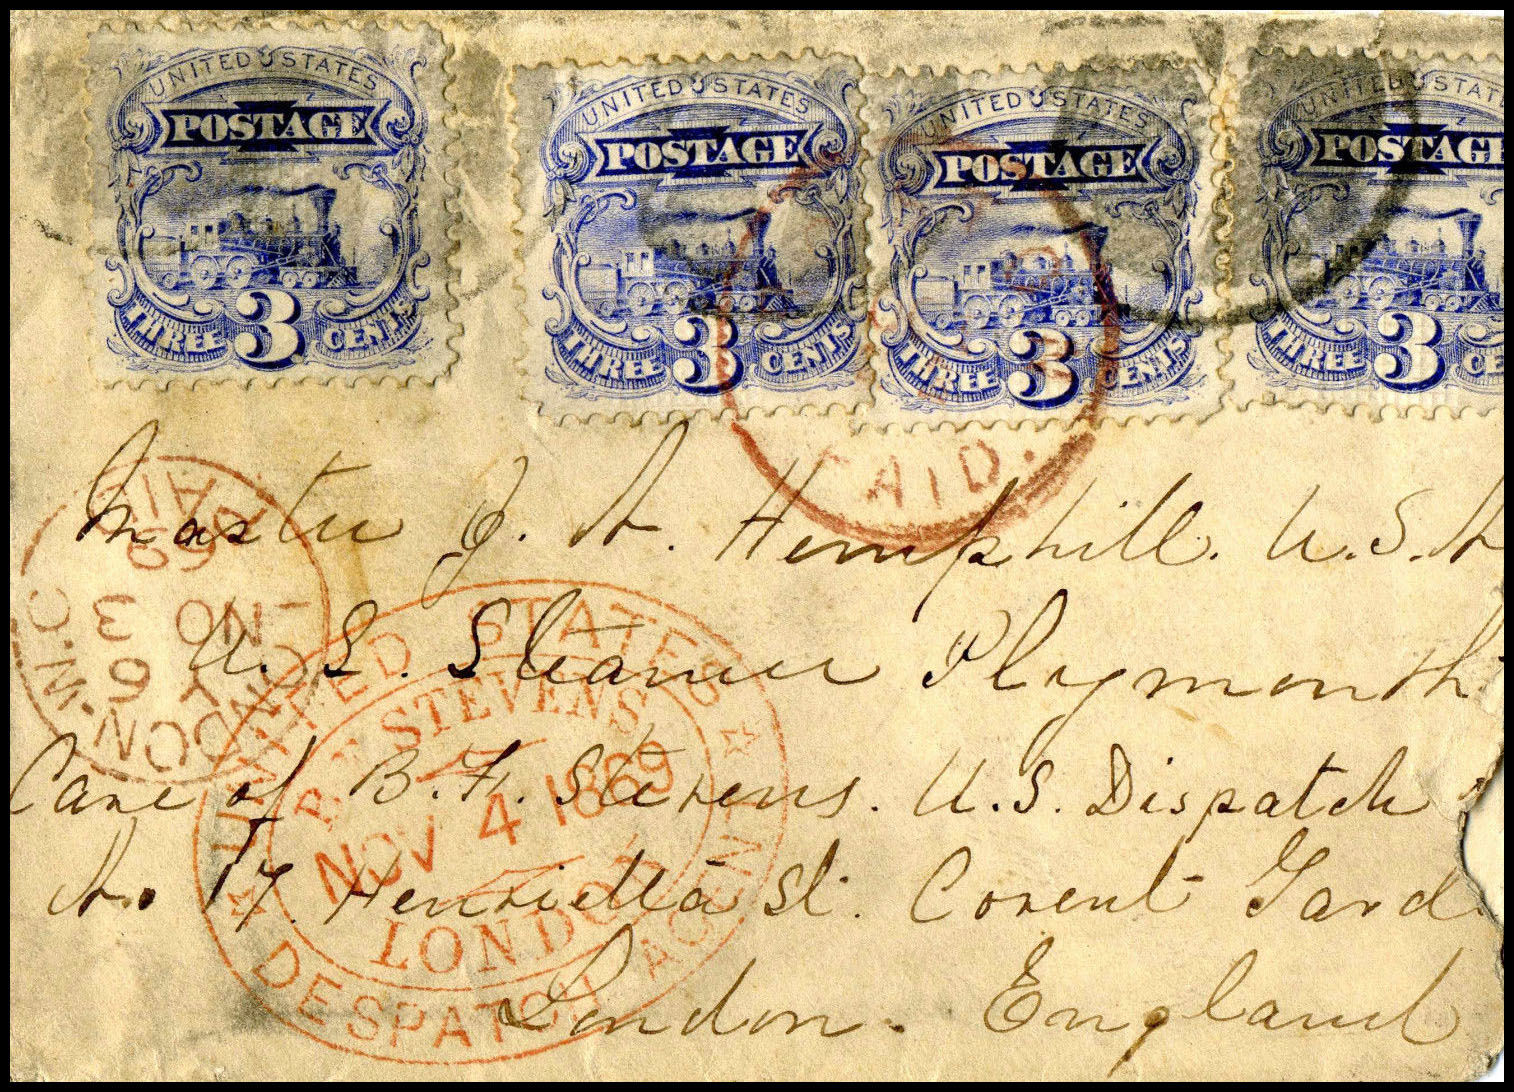 UNITED STATES UNITED STATES UNITED STATES UNITED STAT
POSTAGE POSTAGE POSTAGE POSTAGE
3 3 3 3
THREE CENTS THREE CENTS THREE CENTS THREE CE
PAID.
Master J. N. Hemphill. U.S.N
U.S. Steamer Plymouth
Care of B. F. Stevens. U.S. Dispatch
No 17. Henrietta St. Covent Gard
London. England
LONDON-W.C.
PAID
6
NO 3
69
UNITED STATES
B.F. STEVENS
NOV 4 1869
LONDON
DESPATCH AGENT